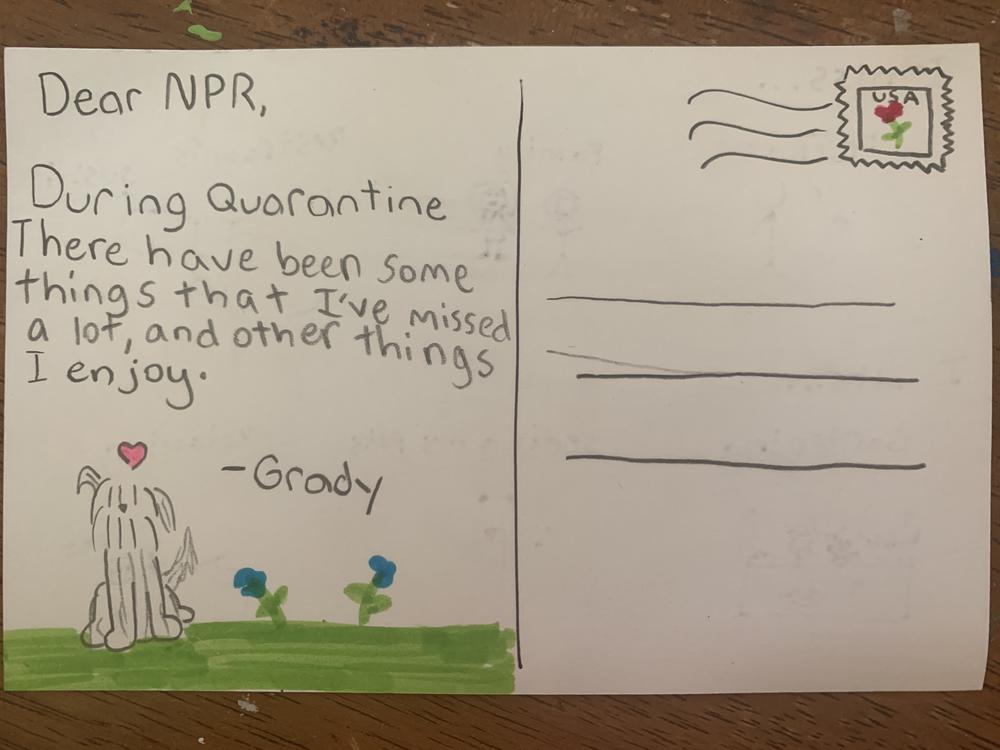 Dear NPR,
During Quarantine
There have been some
things that I've missed
a lot, and other things
I enjoy.
-Grady
USA